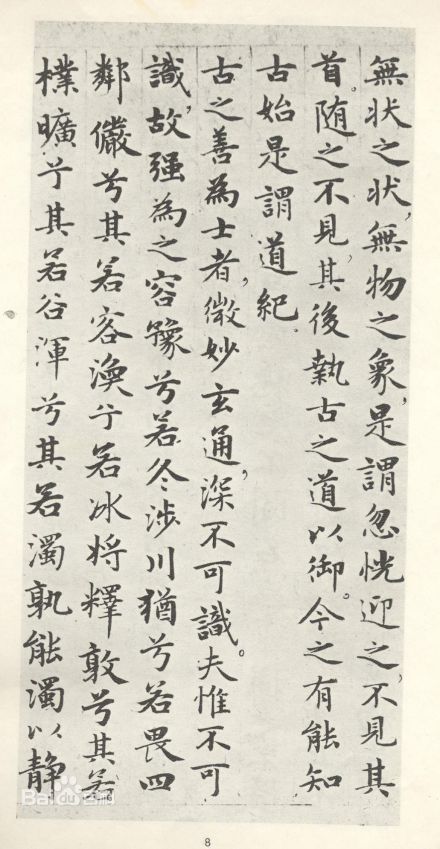 無狀之狀，無物之象，是謂忽恍迎之，不見其
首。随之不見，其後執古之道以御。今之有能知
古始是謂道紀。
古之善為士者，微妙玄通，深不可識。夫惟不可
識，故强為之容豫兮若冬涉川猶兮若畏四
鄰儼兮其若容渙兮若冰將釋敦兮其若
樸曠兮其若谷渾兮其若濁孰能濁以静
8
Baidu百科